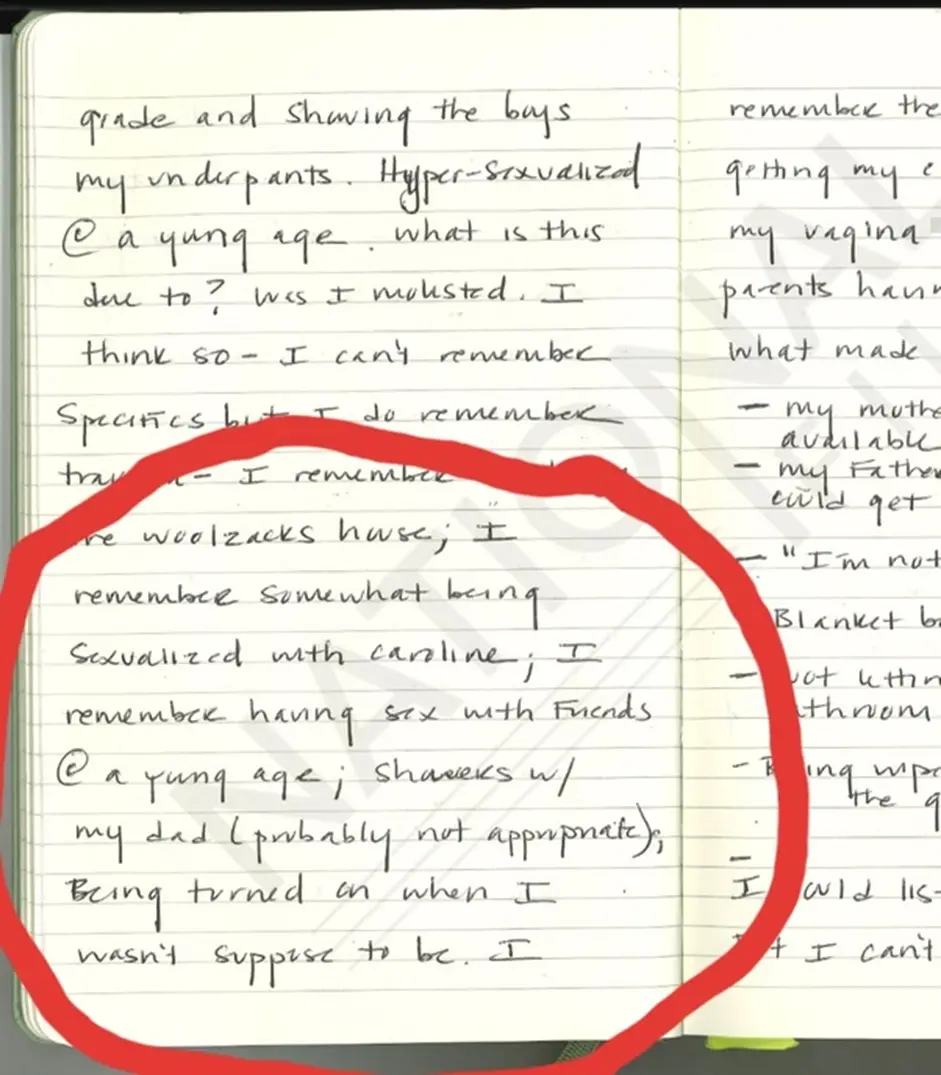 grade and showing the boys
my underpants. Hyper-sexualized
@ a yung age. what is this
due to? Was I molested. I
think so - I can't remember
specifics but I do remember
I remember
woolzacks house; I
remember somewhat being
sexualized with caroline; I
remember having sex with friends
@ a yung age; showers w/
my dad (probably not appropriate);
Being turned on when I
wasn't suppose to be. I
remember the
getting my
my vagina
parents
what made
- my
available
- my Father
could get
- "I'm not
Blanket
-
- the
-
I
I can't
NATIONAL